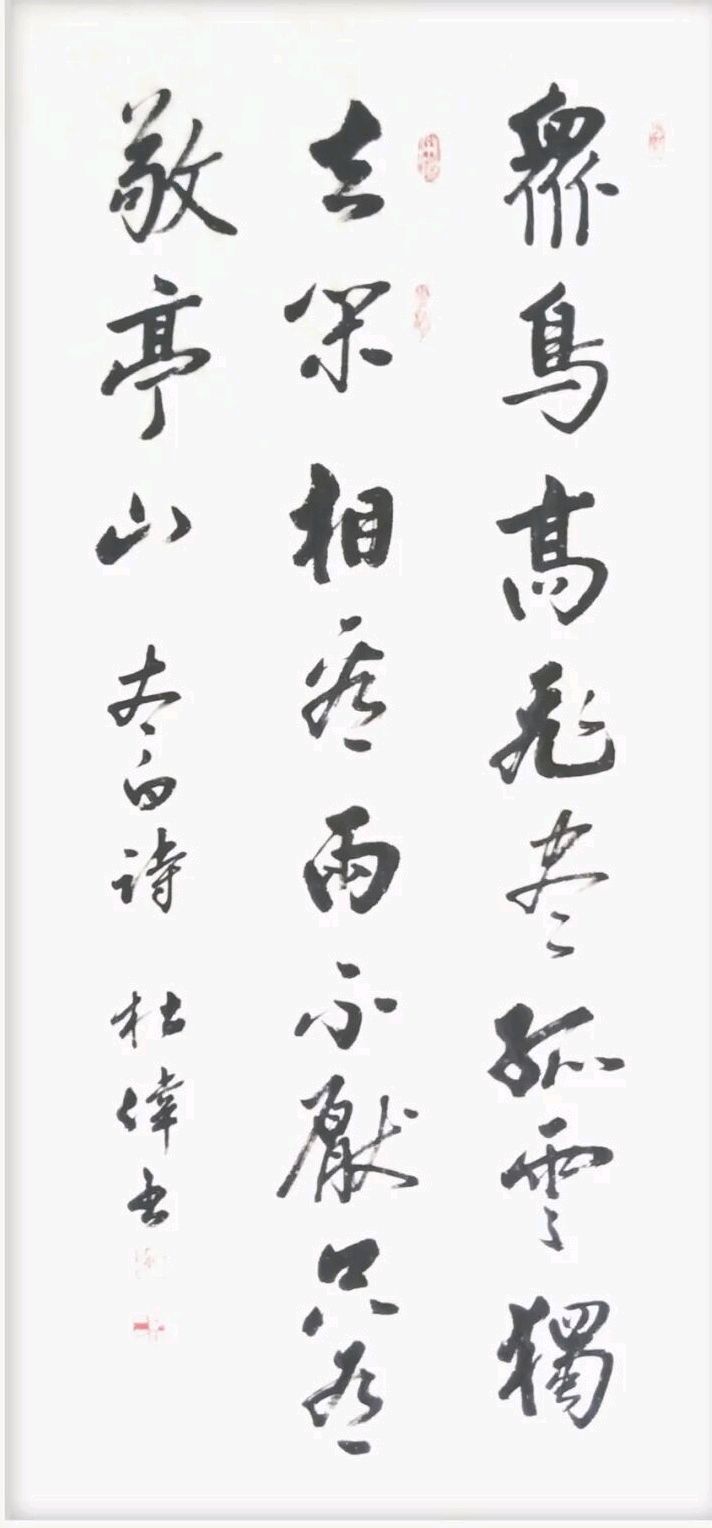 眾鳥高飛盡孤雲獨
去閑相看兩不厭只有
敬亭山 太白詩 杜偉書